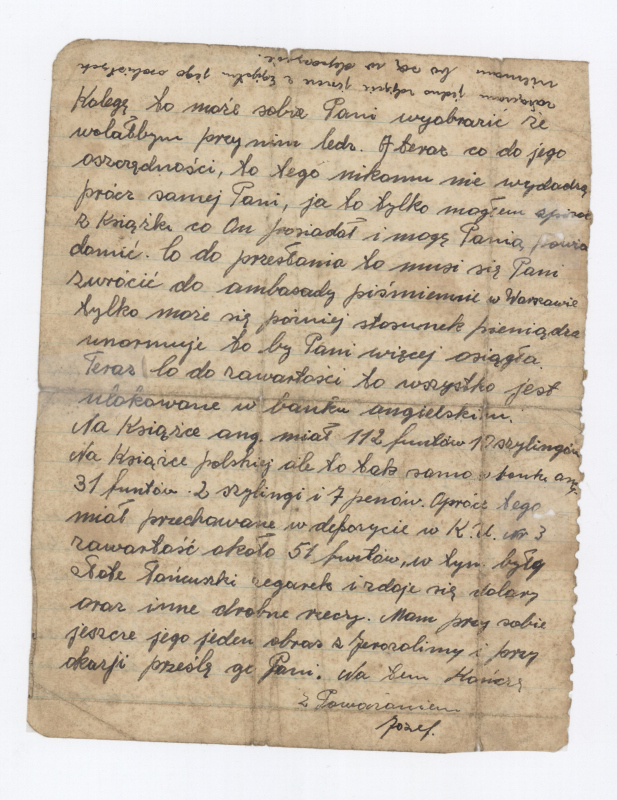 załączam jedno zdjęcie jeszcze z Egiptu jego osobistych
niemam bo są w depozycie.
Kolegę to może sobie Pani wyobrazić że
wolałbym przy nim ledz. A teraz co do jego
oszczędności, to tego nikomu nie wydadzą
prócz samej Pani, ja to tylko mogłem spisać
z Książki co On posiadał i mogę Panią powia
domić. Co do przesłania to musi się Pani
zwrócić do ambasady piśmiennie w Warszawie
tylko może się pózniej stosunek pieniądza
unormuje to by Pani więcej osiągła.
Teraz Co do zawartości to wszystko jest
ulokowane w banku angielskim.
Na Książce ang. miał 112 funtów szylingów
Na Książce polskiej ale to tak samo w banku ang.
31 funtów. 2 szylingi i 7 penów. Oprócz tego
miał przechowane w depozycie w K.U. nr 3
zawartość około 51 funtów, w tym były
złote łańcuszki zegarek i zdaje się dolary
oraz inne drobne rzeczy. Mam przy sobie
jeszcze jego jeden obraz z Jerozolimy i przy
okazji prześlę go Pani. Na tem Kończę
z Poważaniem
Józef.